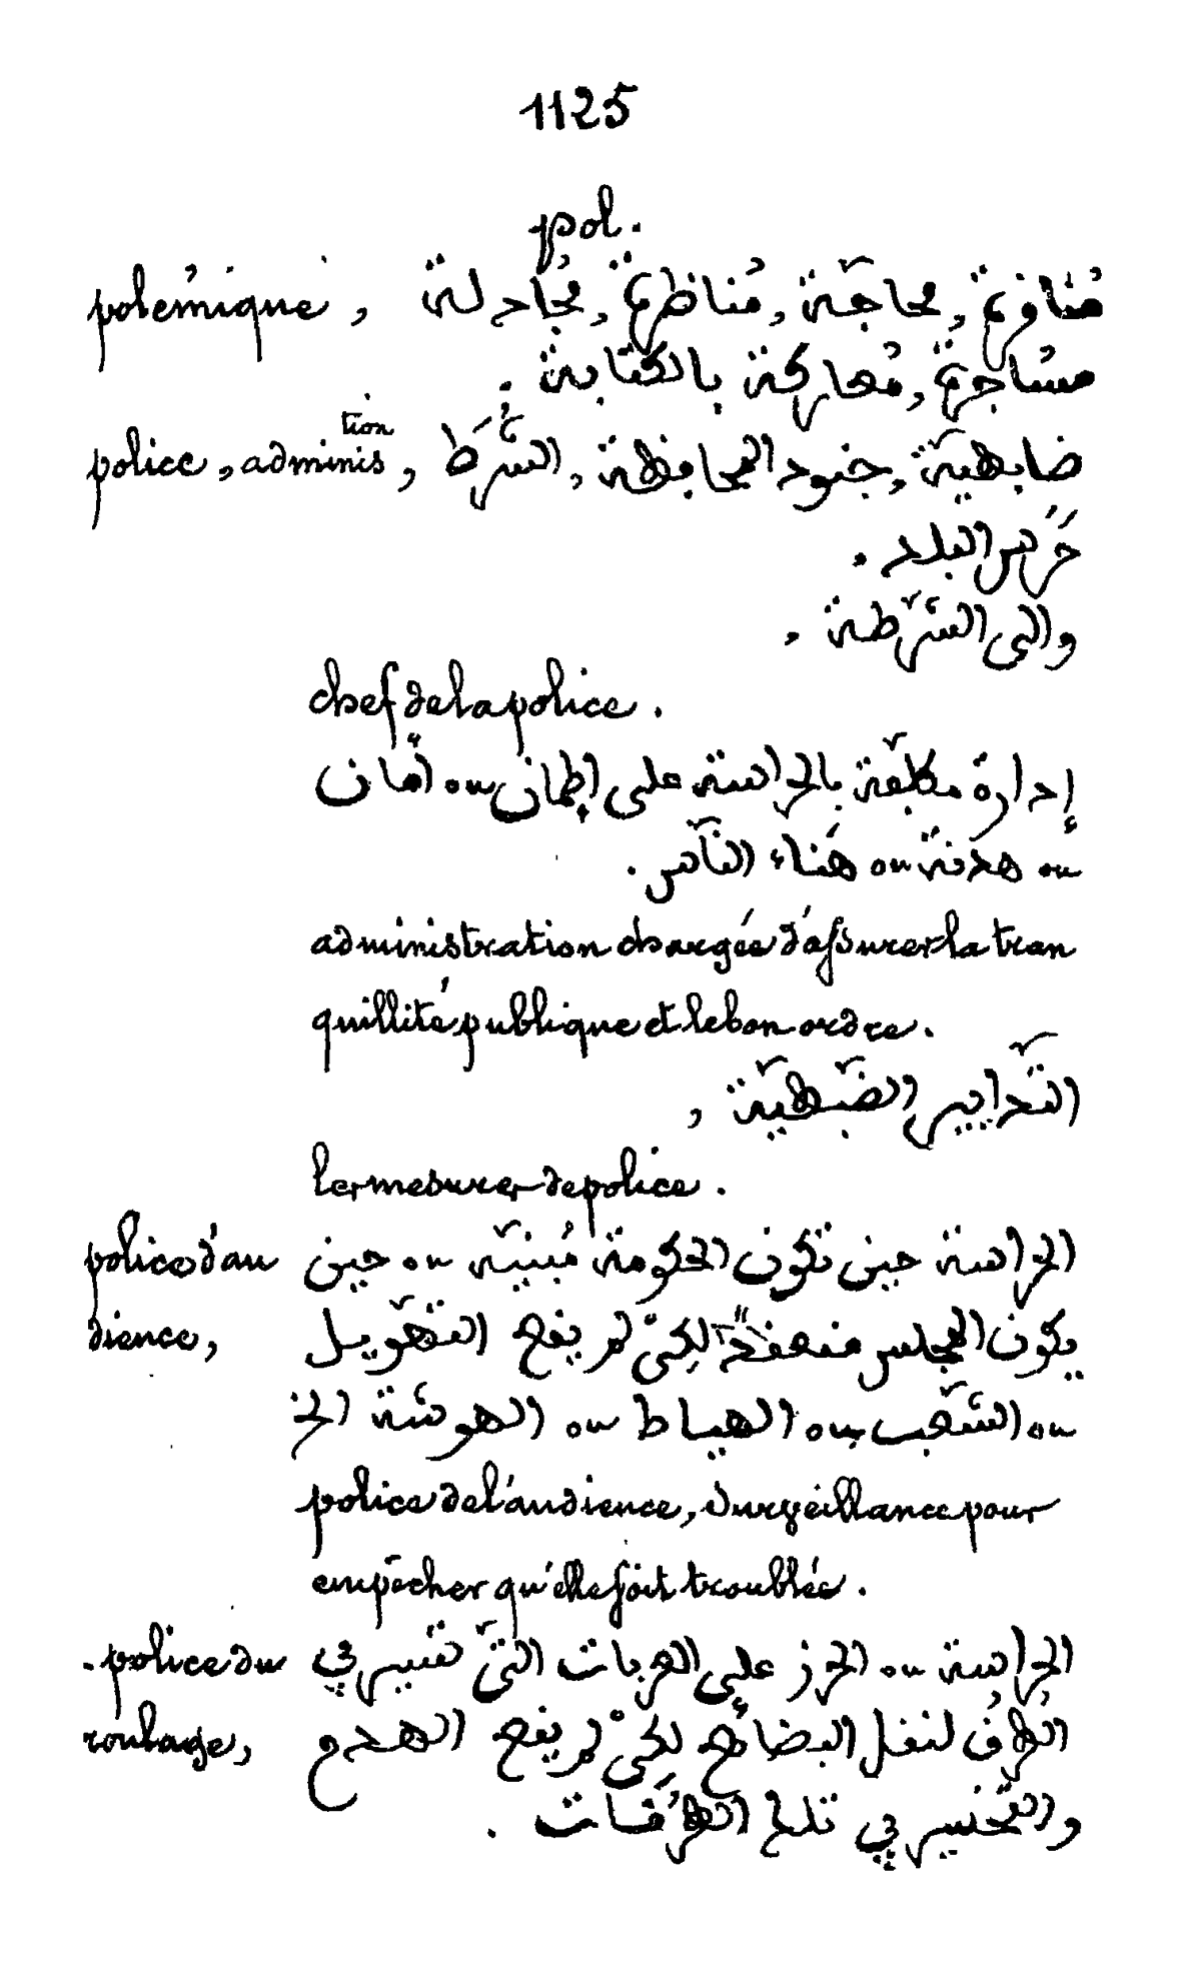 1125
pol.
polémique, مُجادلة, مُناظرة, محاجّة, مُنافرة
مُشاجرة, مُعاركة بالكتابة.
police, administion, الشُّرَط, جنود المحافظة, ضابطيّة
حَرَس البلد.
والى الشّرطة.
chef de la police.
إدارة مكلّفة بالحراسة على إطمان ou أمان
ou هدنة ou هَناء النّاس.
administration chargée d'assurer la tran
quillité publique et le bon ordre.
التّدابير الضّبطيّة,
les mesures de police.
police d'au الحراسة حين تكون الحكومة مُبنيّة ou حين
dience, يكون المجلس منعقدًا لِكىْ لم يقع التّهويل
ou الشّغب ou الهياط ou الهوشة الخ
police de l'audience, surveillance pour
empêcher qu'elle soit troublée.
police du الحراسة ou الحرز على العربات الّتي تسير في
roulage, الطُرُق لنقل البضائع لِكىْ لم يقع الهدم
والتّخسير في تلك الطُرُقات.